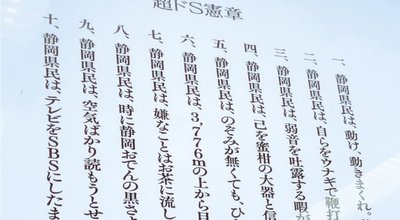 超ドS憲章
一、静岡県民は、動け、動きまくれ、
二、静岡県民は、自らをウナギで鞭打
三、静岡県民は、弱音を吐露する暇が
四、静岡県民は、己を蜜柑の大器と信
五、静岡県民は、のぞみが無くても、ひ
六、静岡県民は、3,776mの上から目
七、静岡県民は、嫌なことはお茶に流し
八、静岡県民は、時に静岡おでんの黒さ
九、静岡県民は、空気ばかり読もうとせ
十、静岡県民は、テレビをSBSにしたま